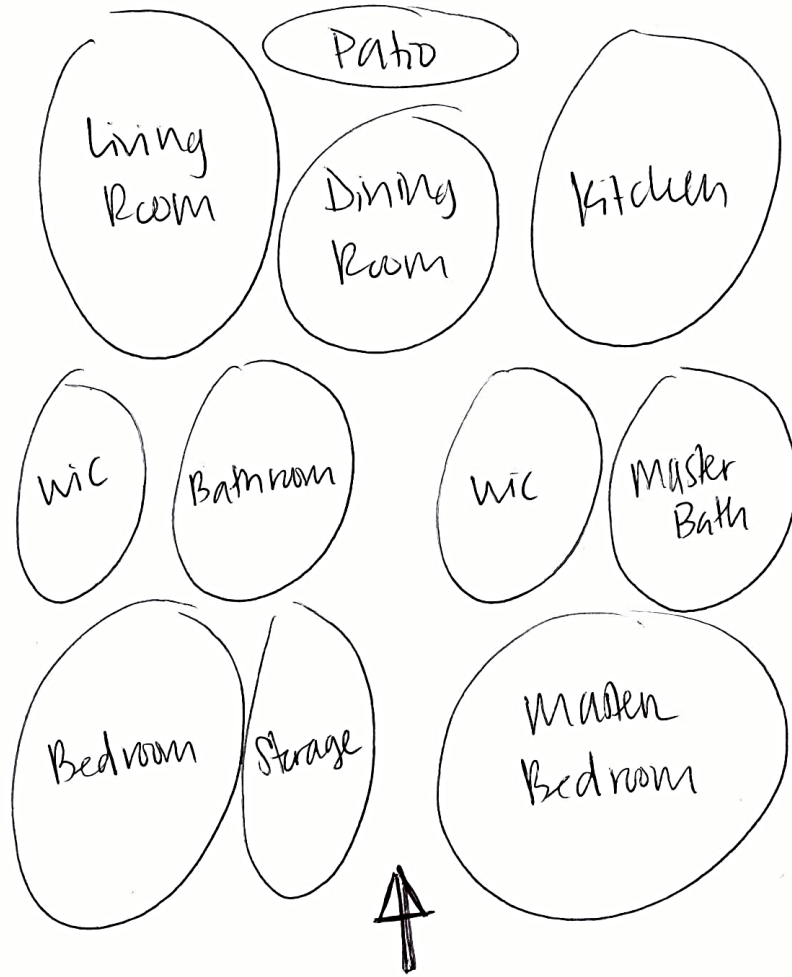 Patio
Living
Room
Dining
Room
Kitchen
WIC
Bathroom
WIC
Master
Bath
Bedroom
Storage
Master
Bedroom